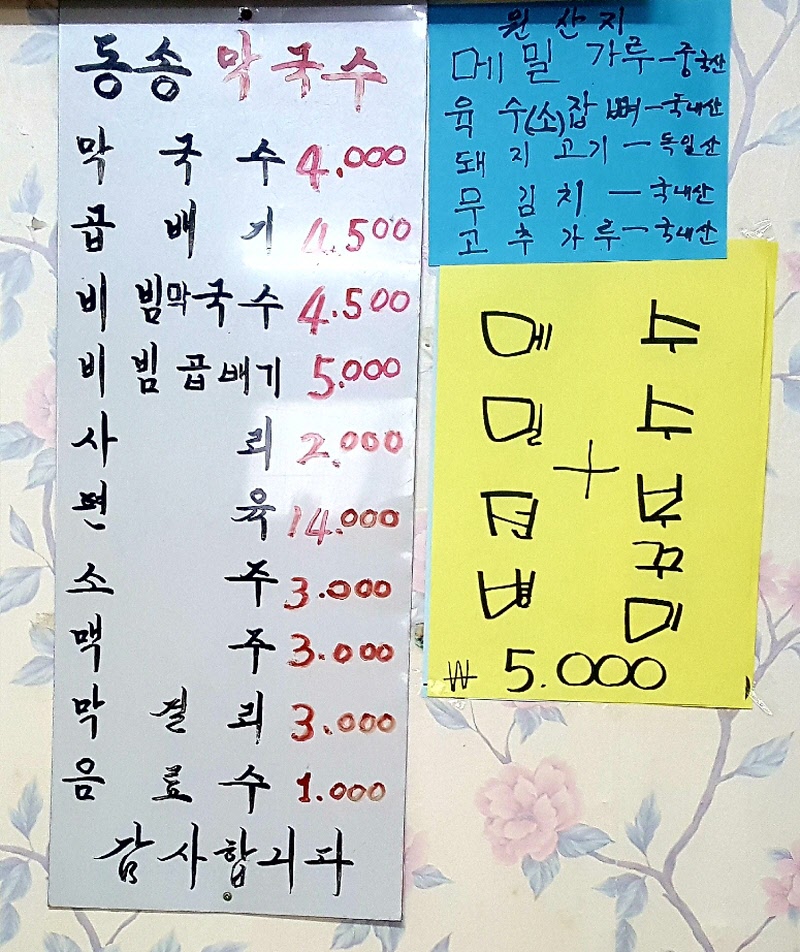 동송막국수
막 국 수 4.000
곱 배 기 4.500
비 빔막국수 4.500
비 빔 곱배기 5.000
사 리 2.000
편 육 14.000
소 주 3.000
맥 주 3.000
막 걸 리 3.000
음 료 수 1.000
감사합니다
원 산 지
메밀 가루-중국산
육 수(소)잡 뼈-국내산
돼 지 고기-독일산
무 김 치 - 국내산
고 추 가 루-국내산
메밀전병
+
수수부꾸미
₩ 5.000